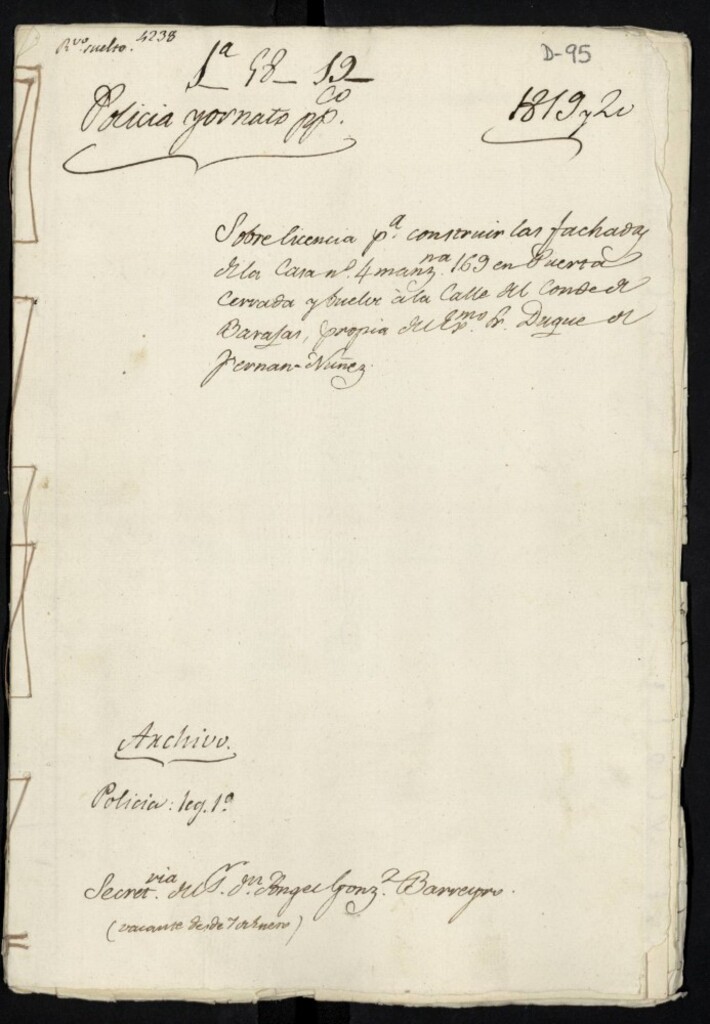 Rvo. suelto. 4238
D-95
1ª 58 - 19
Policia y ornato ppco.
1819 y 20
Sobre licencia pª. construir las fachadas
de la Casa nº. 4 manzna. 169 en Puerta
Cerrada y buelve à la Calle del Conde de
Barajas, propia del Exmo. Sr. Duque de
Fernan-Nuñez.
Archivo.
Policia: leg. 1º
Secretvia. del S. Dn. Angel Gonzz. Barreyro.
(vacante desde 7 de Enero)